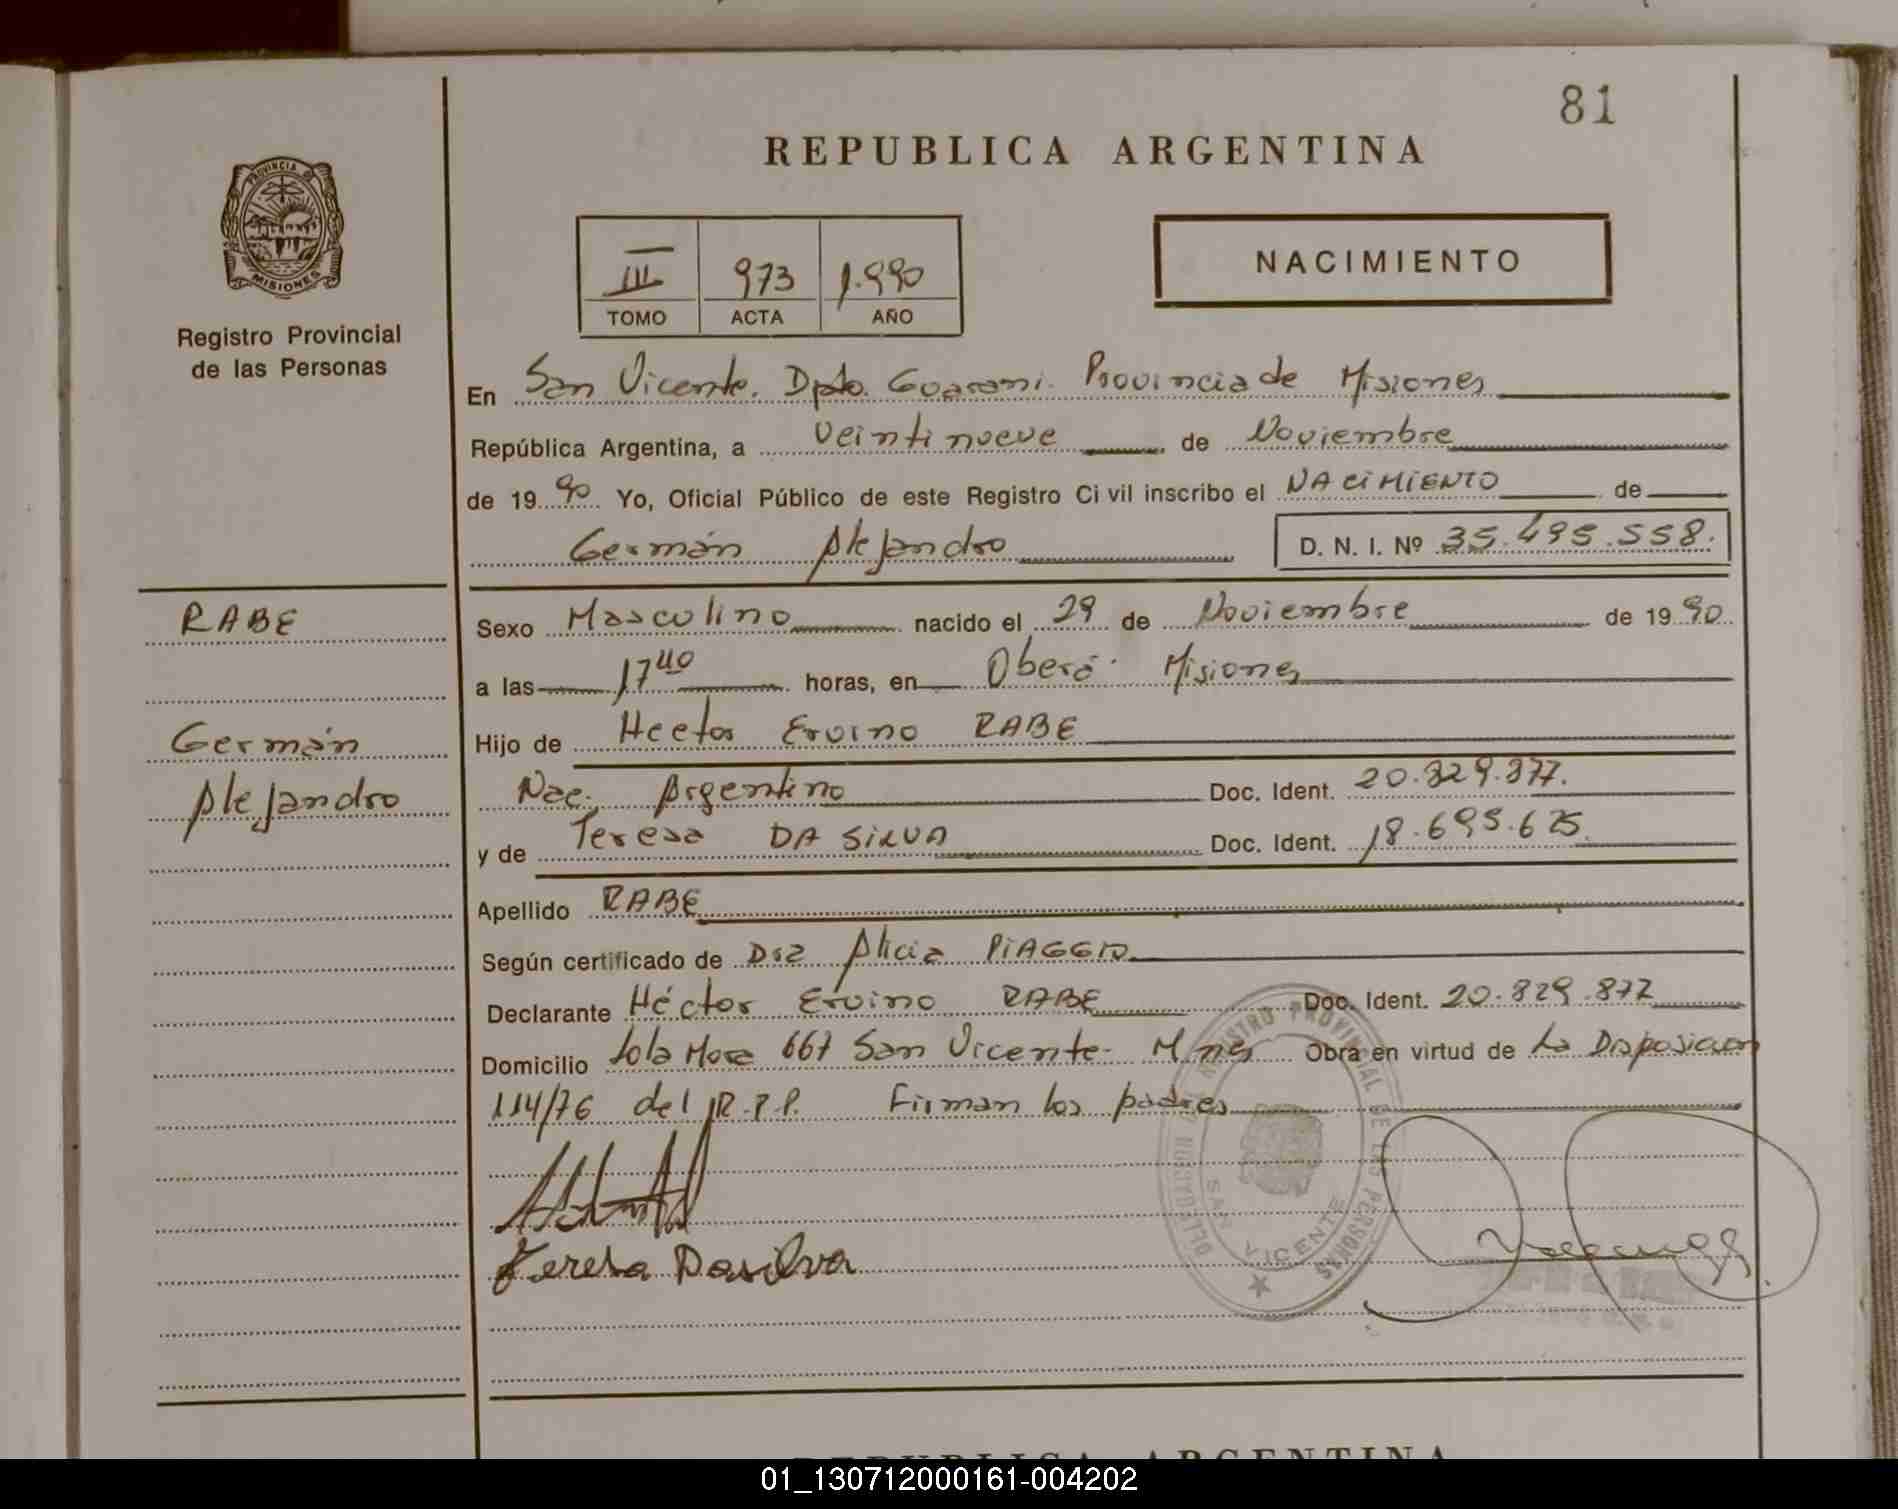 81
REPUBLICA ARGENTINA
PROVINCIA DE
MISIONES
Registro Provincial
de las Personas
III 973 1.990
TOMO ACTA AÑO
NACIMIENTO
En San Vicente. Dpto. Guarani. Provincia de Misiones
República Argentina, a veintinueve de Noviembre
de 1990 Yo, Oficial Público de este Registro Civil inscribo el NACIMIENTO de
Germán Alejandro D. N. I. Nº 35.495.558.
RABE
Germán
Alejandro
Sexo Masculino nacido el 29 de Noviembre de 1990
a las 17 40 horas, en Oberá. Misiones
Hijo de Hector Ervino RABE
Nac. Argentino Doc. Ident. 20.829.877.
y de Teresa DA SILVA Doc. Ident. 18.695.625.
Apellido RABE
Según certificado de Dra Alicia PIAGGIO
Declarante Héctor Ervino RABE Doc. Ident. 20.829.877
Domicilio Lola Mora 667 San Vicente - Mnes Obra en virtud de La Disposicion
114/76 del R.P.P. Firman los padres
Teresa Dasilva
REGISTRO PROVINCIAL DE LAS PERSONAS
DELEGACION
SAN VICENTE
REPUBLICA ARGENTINA
01_130712000161-004202